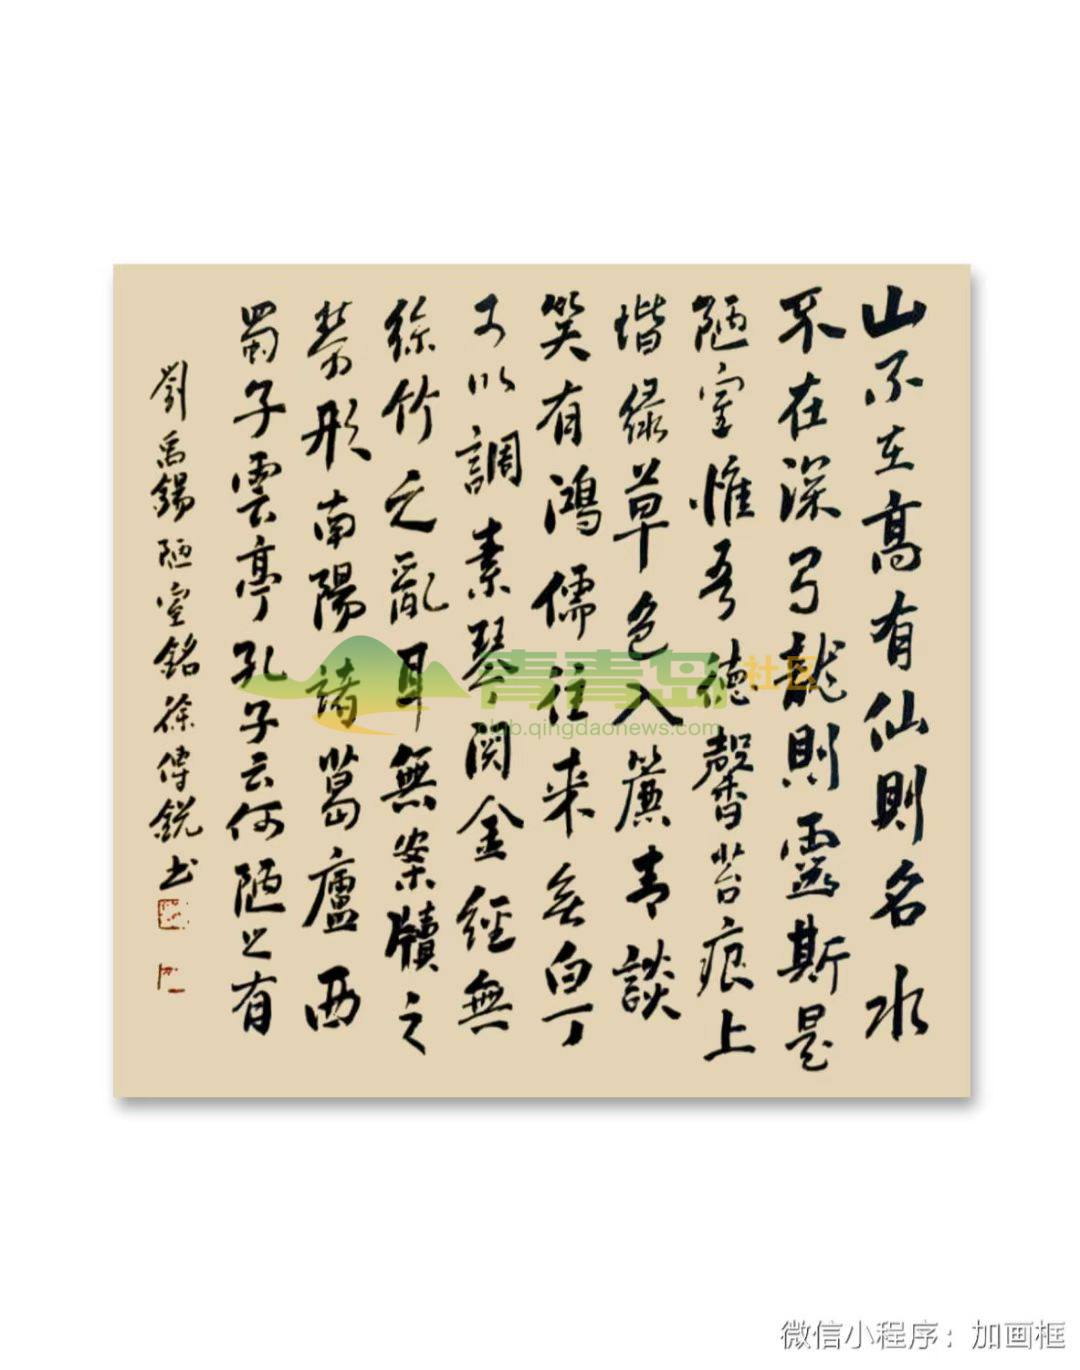 山不在高有仙則名水
不在深有龍則靈斯是
陋室惟吾德馨苔痕上
堦綠草色入簾青談
笑有鴻儒往来無白丁
可以調素琴閱金經無
絲竹之亂耳無案牘之
勞形南陽諸葛廬西
蜀子雲亭孔子云何陋之有
劉禹錫陋室銘徐傳銳书
青青岛社区
club.qingdaonews.com
微信小程序：加画框